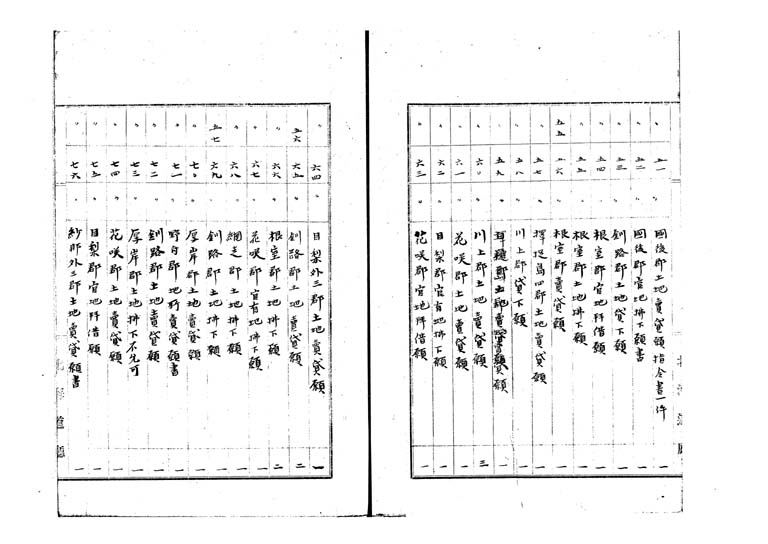 〃 五一 〃 國後郡土地賣貸願指令書一件 一
〃 五二 〃 国後郡官地拂下願書 一
〃 五三 〃 釧路郡土地拂下願 一
〃 五四 〃 根室郡官地拝借願 一
〃 五五 〃 根室郡土地拂下願 一
五五 五六 〃 根室郡賣貸願 一
〃 五七 〃 擇捉島四郡土地賣貸願 一
〃 五八 〃 川上郡貸下願 一
〃 五九 〃 郡土地賣貸願 一
〃 六〇 〃 川上郡土地賣貸願 三
〃 六一 〃 花咲郡土地賣貸願 一
〃 六二 〃 目梨郡官有地拂下願 一
〃 六三 〃 花咲郡官地拝借願 一
〃 六四 〃 目梨外三郡土地賣貸願 一
五六 六五 〃 釧路郡土地賣貸願 二
〃 六六 〃 根室郡土地拂下願 二
〃 六七 〃 花咲郡官有地拂下願 一
〃 六八 〃 網走郡土地拂下願 一
五七 六九 〃 釧路郡土地拂下願 一
〃 七〇 〃 厚岸郡土地賣貸願 一
〃 七一 〃 野付郡地所賣貸願書 一
〃 七二 〃 釧路郡土地賣貸願 一
〃 七三 〃 厚岸郡土地拂下不允可 一
〃 七四 〃 花咲郡土地賣貸願 一
〃 七五 〃 目梨郡官地拝借願 一
〃 七六 〃 紗那外三郡土地賣貸願書 一